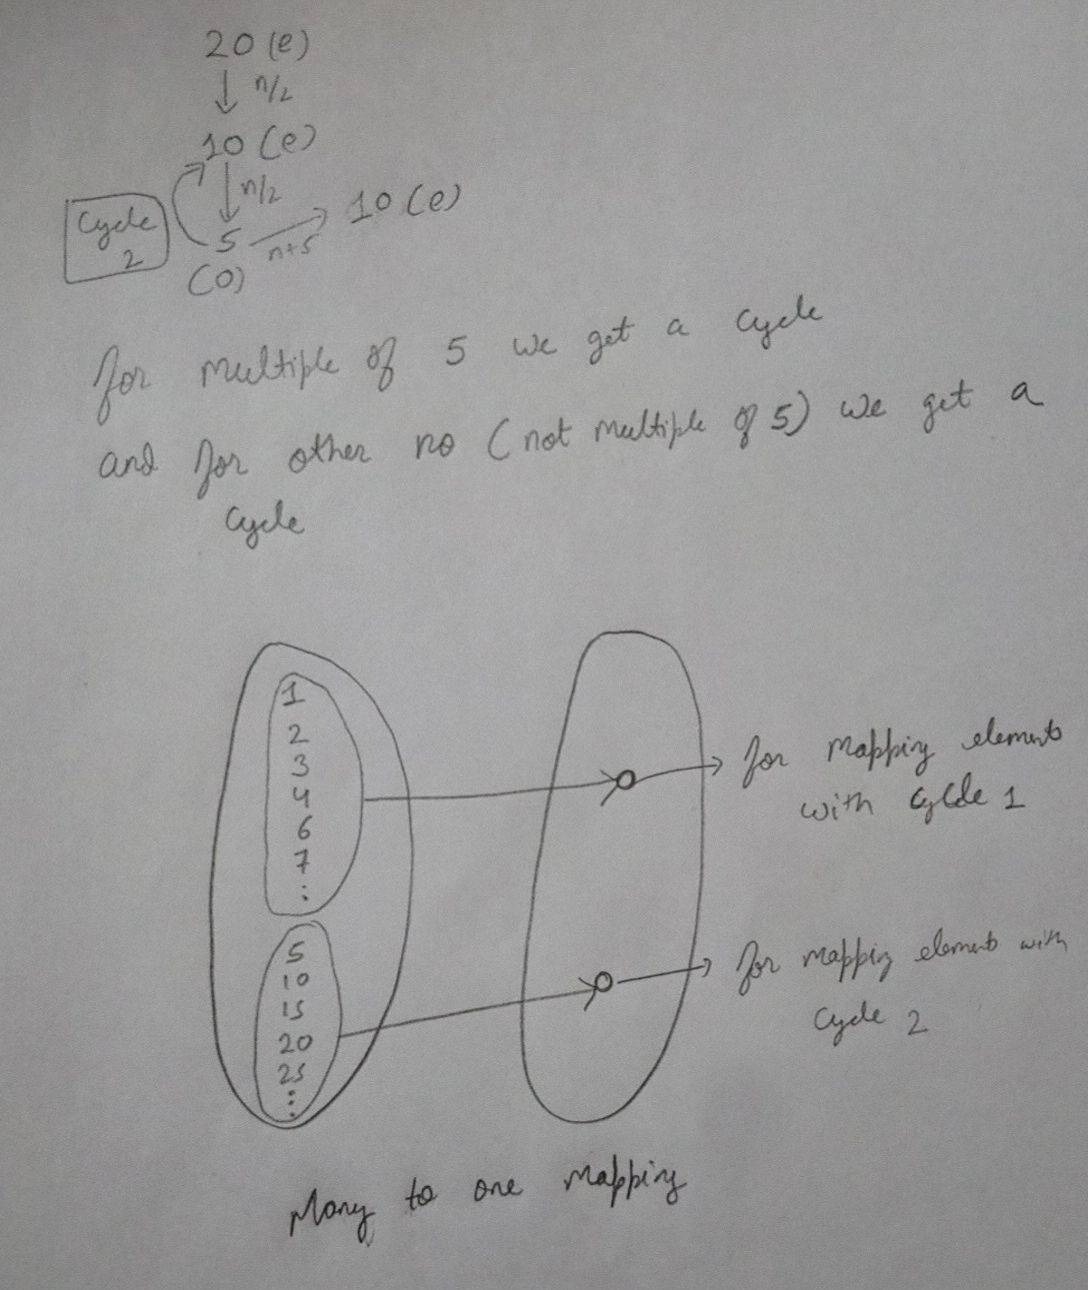 20 (e)
n/2
10 (e)
n/2
10 (e)
Cycle
2
5
n+5
(O)
for multiple of 5 we get a cycle
and for other no (not multiple of 5) we get a
cycle
1
2
3
4
6
7
:
for mapping elements
with cycle 1
5
10
15
20
25
:
for mapping elements with
cycle 2
Many to one mapping